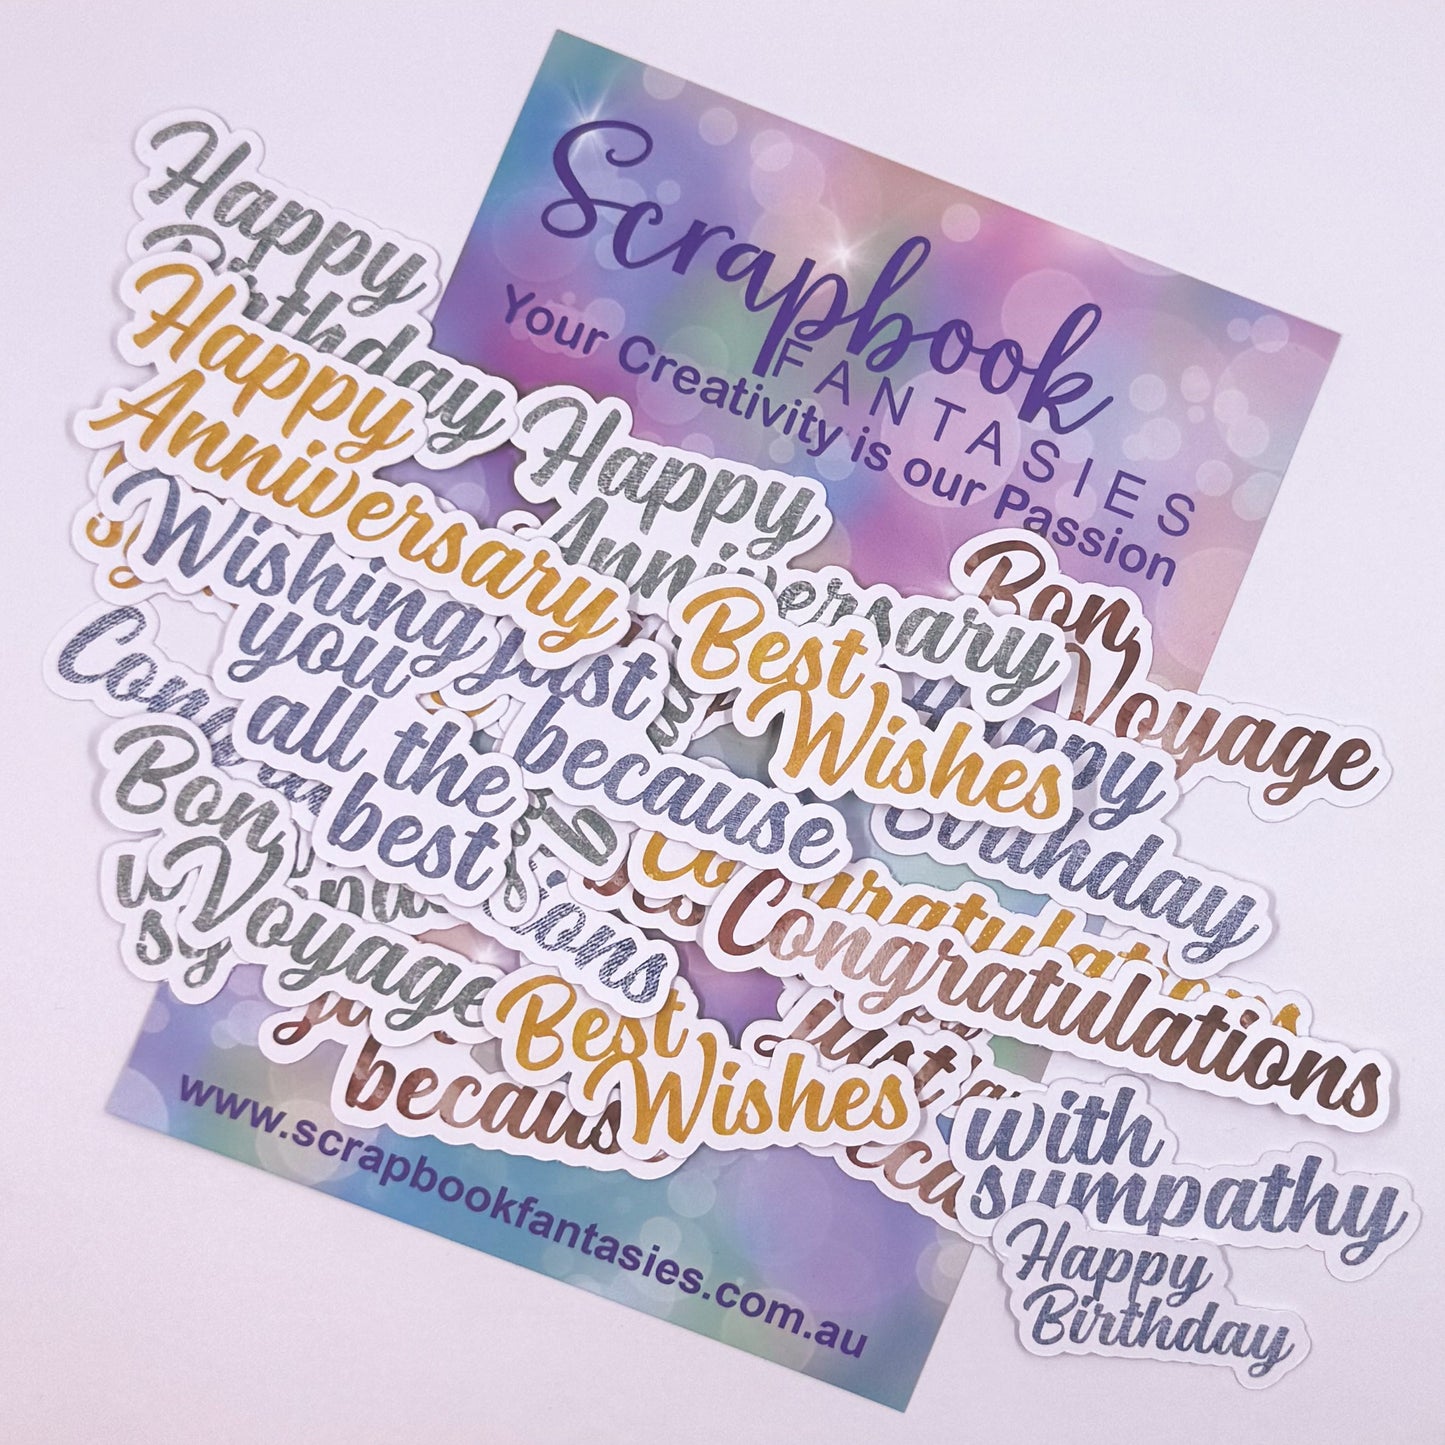 Scrapbook
FANTASIES
Your Creativity is our Passion
Happy
Birthday
Happy
Anniversary
Happy
Anniversary
Bon
Voyage
Wishing
you
all the
best
just
because
Best
Wishes
Happy
Birthday
Congratulations
Congratulations
Bon
Voyage
Best
Wishes
just
with
sympathy
Happy
Birthday
www.scrapbookfantasies.com.au